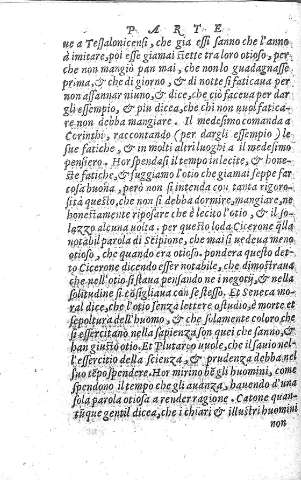 PARTE
ue a Tessalonicensi, che gia essi sanno che l'anno
à imitare, poi esse giamai stette tra loro otioso, per
che non mangiò pan mai, che non lo guadagnasse
prima, & che di giorno, & di notte si faticaua per
non assannar niuno, & dice, che ciò faceua per dar
gli essempio, & piu dicea, che chi non vuol fatica-
re non debba mangiare. Il medesimo comanda a
Corinthi, raccontando (per dargli essempio) le
sue fatiche, & in molti altri luoghi a il medesimo
pensiero. Hor spendasi il tempo in lecite, & hone-
ste fatiche, & fuggiamo l'otio che giamai seppe far
cosa buona, però non si intenda con tanta rigoro-
sità questo, che non si debba dormire, mangiare, ne
honestamente riposare che è lecito l'otio, & il so-
lazzo alcuna uolta. per questo loda Cicerone q̃lla
notabil parola di Scipione, che mai si uedeua meno
otioso, che quando era otioso. pondera questo det-
to Cicerone dicendo esser notabile, che dimostraua
che nell'otio si staua pensando ne i negotÿ, & nella
solitudine si cõsigliaua con se stesso. Et Seneca mo-
ral dice, che l'otio senza lettere o studio, è morte et
sepoltura dell'huomo, & che solamente coloro, che
si essercitano nella sapienza son quei che sanno, &
han giusto otio. Et Plutarco uuole, che il sauio nel-
l'essercitio della scienza, & prudenza debba nel
suo tẽpo spendere. Hor mirino bẽ gli huomini, come
spendono il tempo che gli auanza, hauendo d'una
sola parola otiosa a render ragione. Catone quan-
tũque gentil dicea, che i chiari & illustri huomini
non